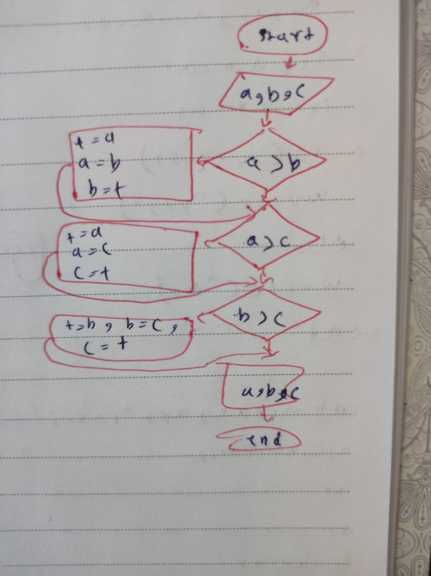 start
a,b,c
t=a
a=b
b=t
a>b
t=a
a=c
c=t
a>c
t=b, b=c,
c=t
b>c
a,b,c
end